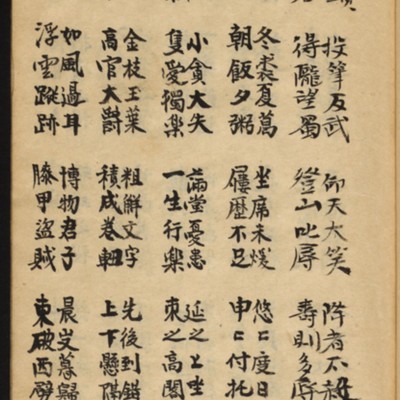 投筆反武
得隴望蜀
仰天大笑
登山叱辱
降者不殺
壽則多辱
冬裘夏葛
朝飯夕粥
坐席未煖
屢歷不足
悠〻度日
申〻付托
小貪大失
隻愛獨樂
滿堂憂患
一生行樂
延之上坐
束之高閣
金枝玉葉
高官大爵
粗解文字
積成卷軸
先後到錯
上下懸隔
如風過耳
浮雲蹤跡
博物君子
甲盜賊
晨暮歸
東破西劈